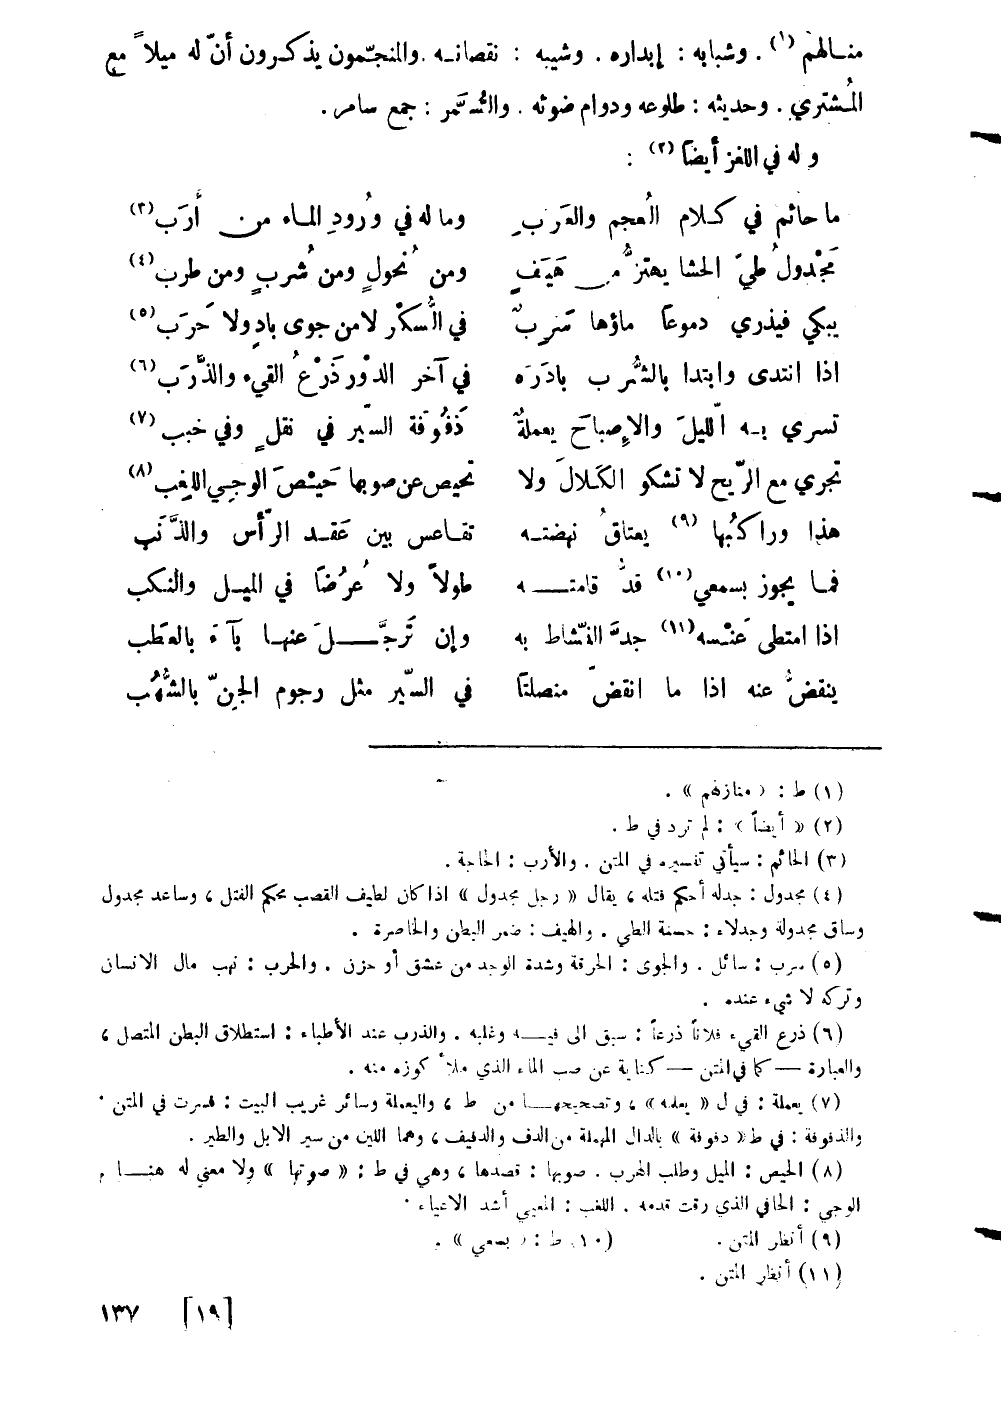 منالهم (١) . وشبابه : إبداره . وشيبه : نقصانه . والمنجّمون يذكرون أنّ له ميلاً مع
المُشتري . وحديثه : طلوعه ودوام ضوئه . والسُّمّر : جمع سامر .
وله في اللغز أيضاً (٢) :
ما حائم في كلام العُجم والعَرب وما له في وُرودِ الماء من أَرَب (٣)
مَجْدولُ طيّ الحشا يهتزُّ من هَيَفٍ ومن نُحولٍ ومن شُربٍ ومن طرب (٤)
يبكي فيذري دموعاً ماؤها سَرِبٌ في السُّكْر لا من جوى بادٍ ولا حَرَب (٥)
اذا انتدى وابتدا بالشُّرب بادَرَه في آخر الدوْر ذَرْعُ القيء والذَّرَب (٦)
تسري به الّليلَ والإصباحَ يعملةٌ ذَفُوفة السّير في نقلٍ وفي خبب (٧)
تجري مع الرّيح لا تشكو الكَلالَ ولا تحيص عن صوبها حَيْصَ الوجِي اللغِب (٨)
هذا وراكبُها (٩) يعتاقُ نهضته تقاعس بين عَقد الرّأس والذَّنَب
فما يجوز بسمعي (١٠) قدُّ قامته طولاً ولا عُرُضاً في الميل والنكب
اذا امتطى عَنْسه (١١) جدَّ النّشاط به وإن تَرجَّلَ عنها بآءَ بالعَطب
ينقضُّ عنه اذا ما انقضّ منصلتا في السّير مثل رجوم الجنّ بالشُّهُب
(١) ط : « منازلهم » .
(٢) « أيضاً » : لم ترد في ط .
(٣) الحائم : سيأتي تفسيره في المتن . والأرب : الحاجة .
(٤) مجدول : جدله أحكم فتله ، يقال « رجل مجدول » اذا كان لطيف القصب محكم الفتل ، وساعد مجدول
وساق مجدولة وجدلاء : حسنة الطي . والهيف : ضمر البطن والخاصرة .
(٥) سرب : سائل . والجوى : الحرقة وشدة الوجد من عشق أو حزن . والحرب : نهب مال الانسان
وتركه لا شيء عنده .
(٦) ذرع القيء فلاناً ذرعاً : سبق الى فيه وغلبه . والذرب عند الأطباء : استطلاق البطن المتصل ،
والعبارة — كما في المتن — كناية عن صب الماء الذي ملأ كوزه منه .
(٧) يعملة : في ل « يعمله » ، وتصحيحها من ط ، واليعملة وسائر غريب البيت : فسرت في المتن .
والذفوفة : في ط « دفوفة » بالدال المهملة من الدف والدفيف ، وهما اللين من سير الابل والطير .
(٨) الحيص : الميل وطلب الهرب . صوبها : قصدها ، وهي في ط : « صوتها » ولا معنى له هنا ,
الوجي : الحافي الذي رقت قدمه . اللغب : المعيي أشد الاعياء .
(٩) أنظر المتن . (١٠) ط : « بسمعي » .
(١١) أنظر المتن .
[١٩] ١٣٧